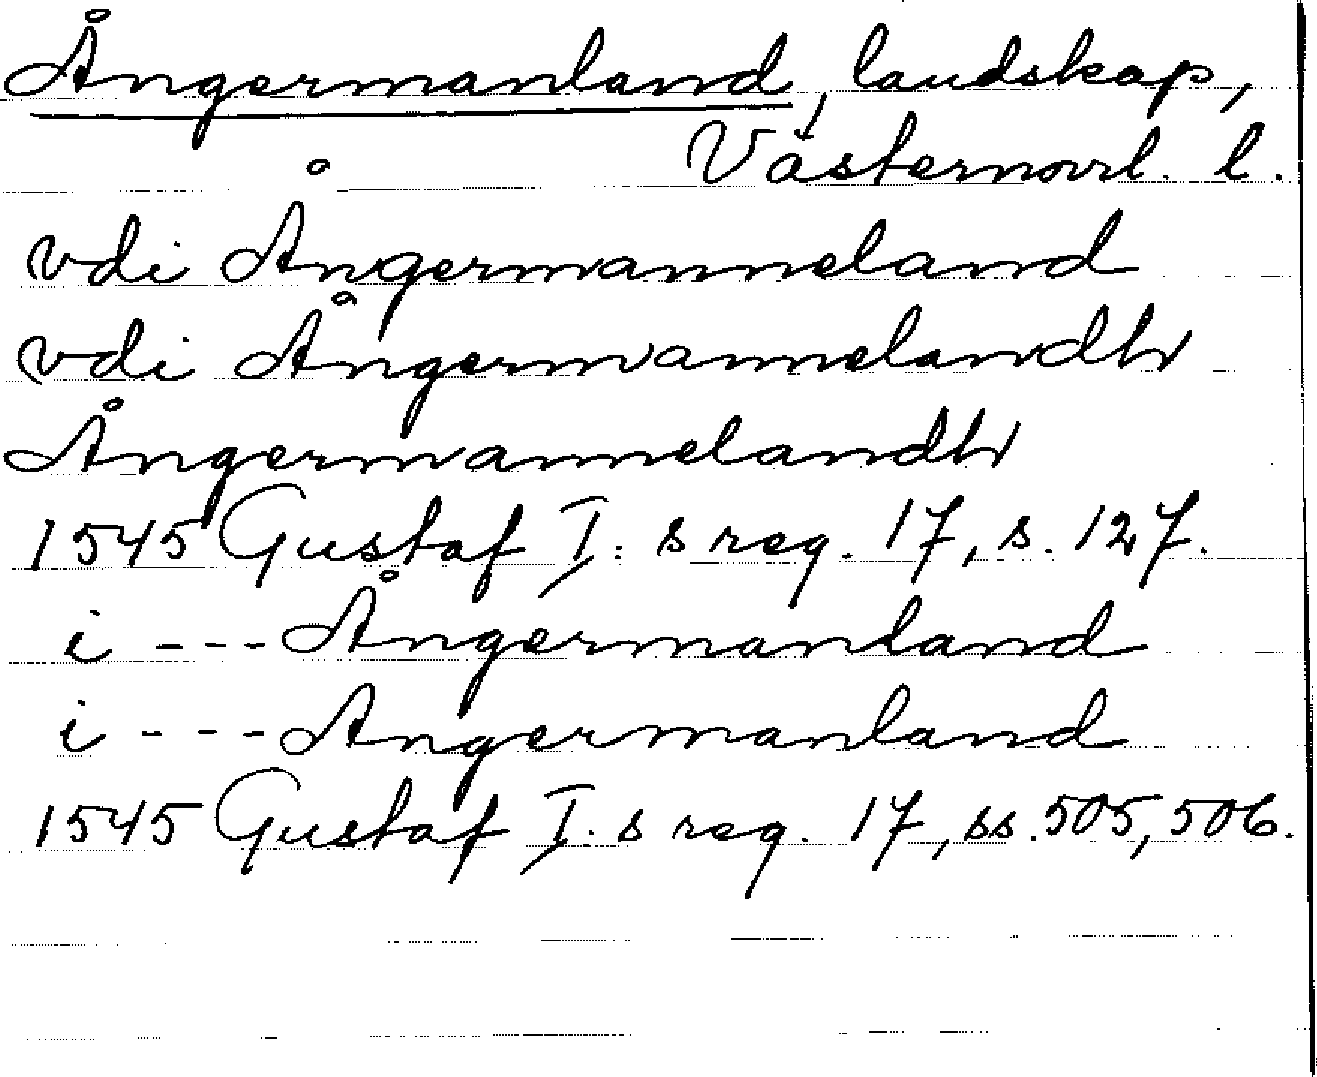 Ångermanland, landskap,
Västernorrl. l.
vdi Ångermanneland
vdi Ångermannelandh
Ångermannelandh
1545 Gustaf I:s reg. 17, s. 127.
i --- Ångermanland
i --- Angermanland
1545 Gustaf I:s reg. 17, ss. 505, 506.